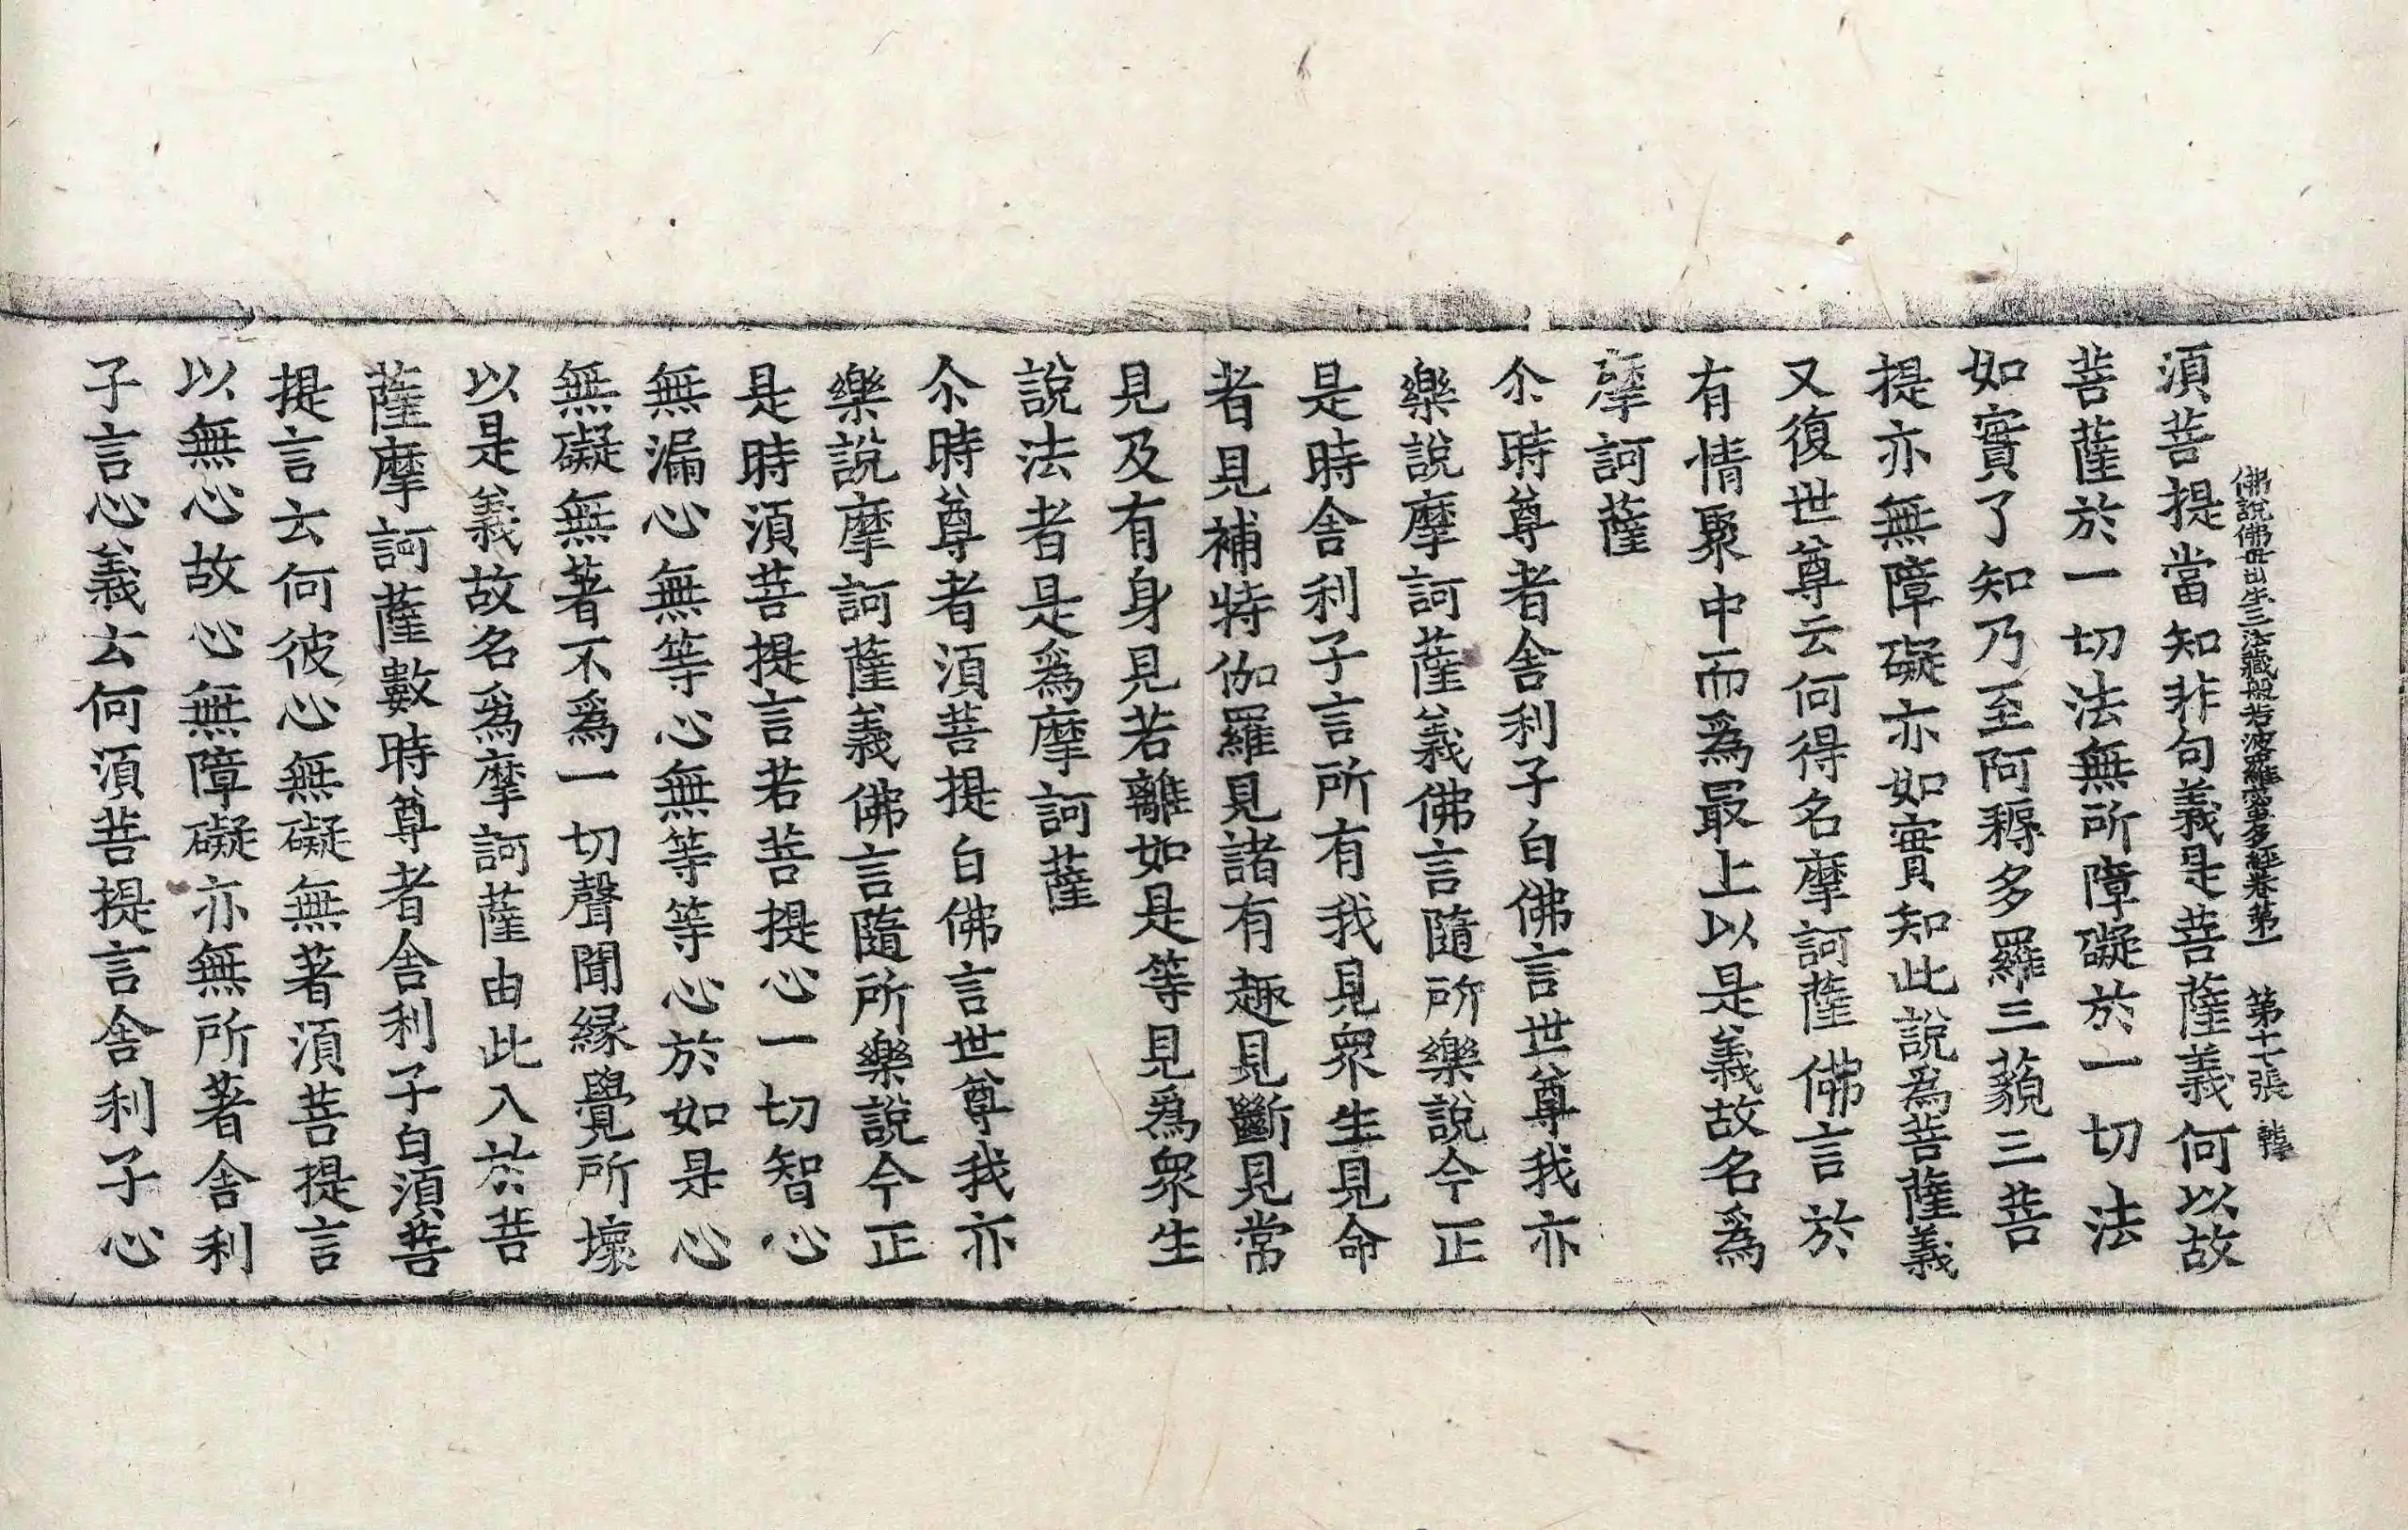 佛說佛母出生三法藏般若波羅蜜多經卷第一 第十七張 韓
須菩提當知非句義是菩薩義何以故
菩薩於一切法無所障礙於一切法
如實了知乃至阿耨多羅三藐三菩
提亦無障礙亦如實知此說為菩薩義
又復世尊云何得名摩訶薩佛言於
有情聚中而為最上以是義故名為
摩訶薩
尒時尊者舍利子白佛言世尊我亦
樂說摩訶薩義佛言隨所樂說今正
是時舍利子言所有我見衆生見命
者見補特伽羅見諸有趣見斷見常
見及有身見若離如是等見爲衆生
說法者是爲摩訶薩
尒時尊者須菩提白佛言世尊我亦
樂說摩訶薩義佛言隨所樂說今正
是時須菩提言若菩提心一切智心
無漏心無等心無等等心於如是心
無礙無著不爲一切聲聞緣覺所壞
以是義故名爲摩訶薩由此入於菩
薩摩訶薩數時尊者舍利子白須菩
提言云何彼心無礙無著須菩提言
以無心故心無障礙亦無所著舍利
子言心義云何須菩提言舍利子心